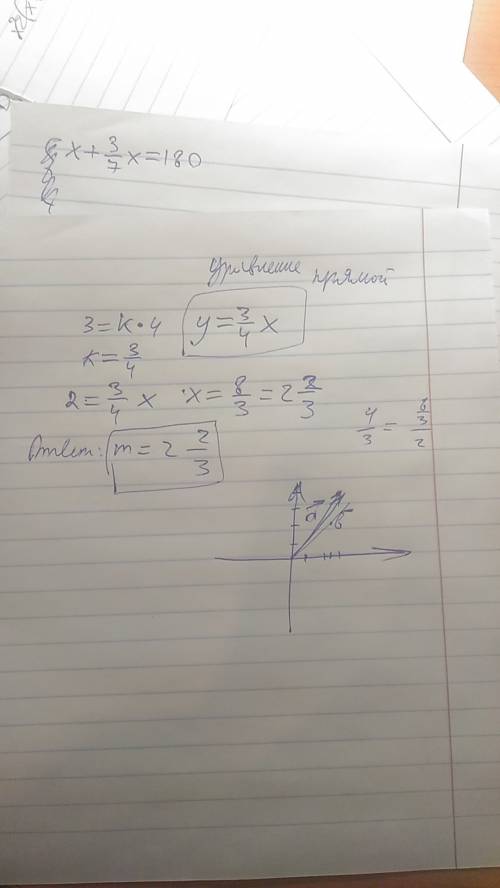 x + 3/7 x = 180
уравнение прямой
3 = k · 4
y = 3/4 x
k = 3/4
2 = 3/4 x · x = 8/3 = 2 2/3
4/3 = 8/3/2
Ответ: m = 2 2/3
a
b